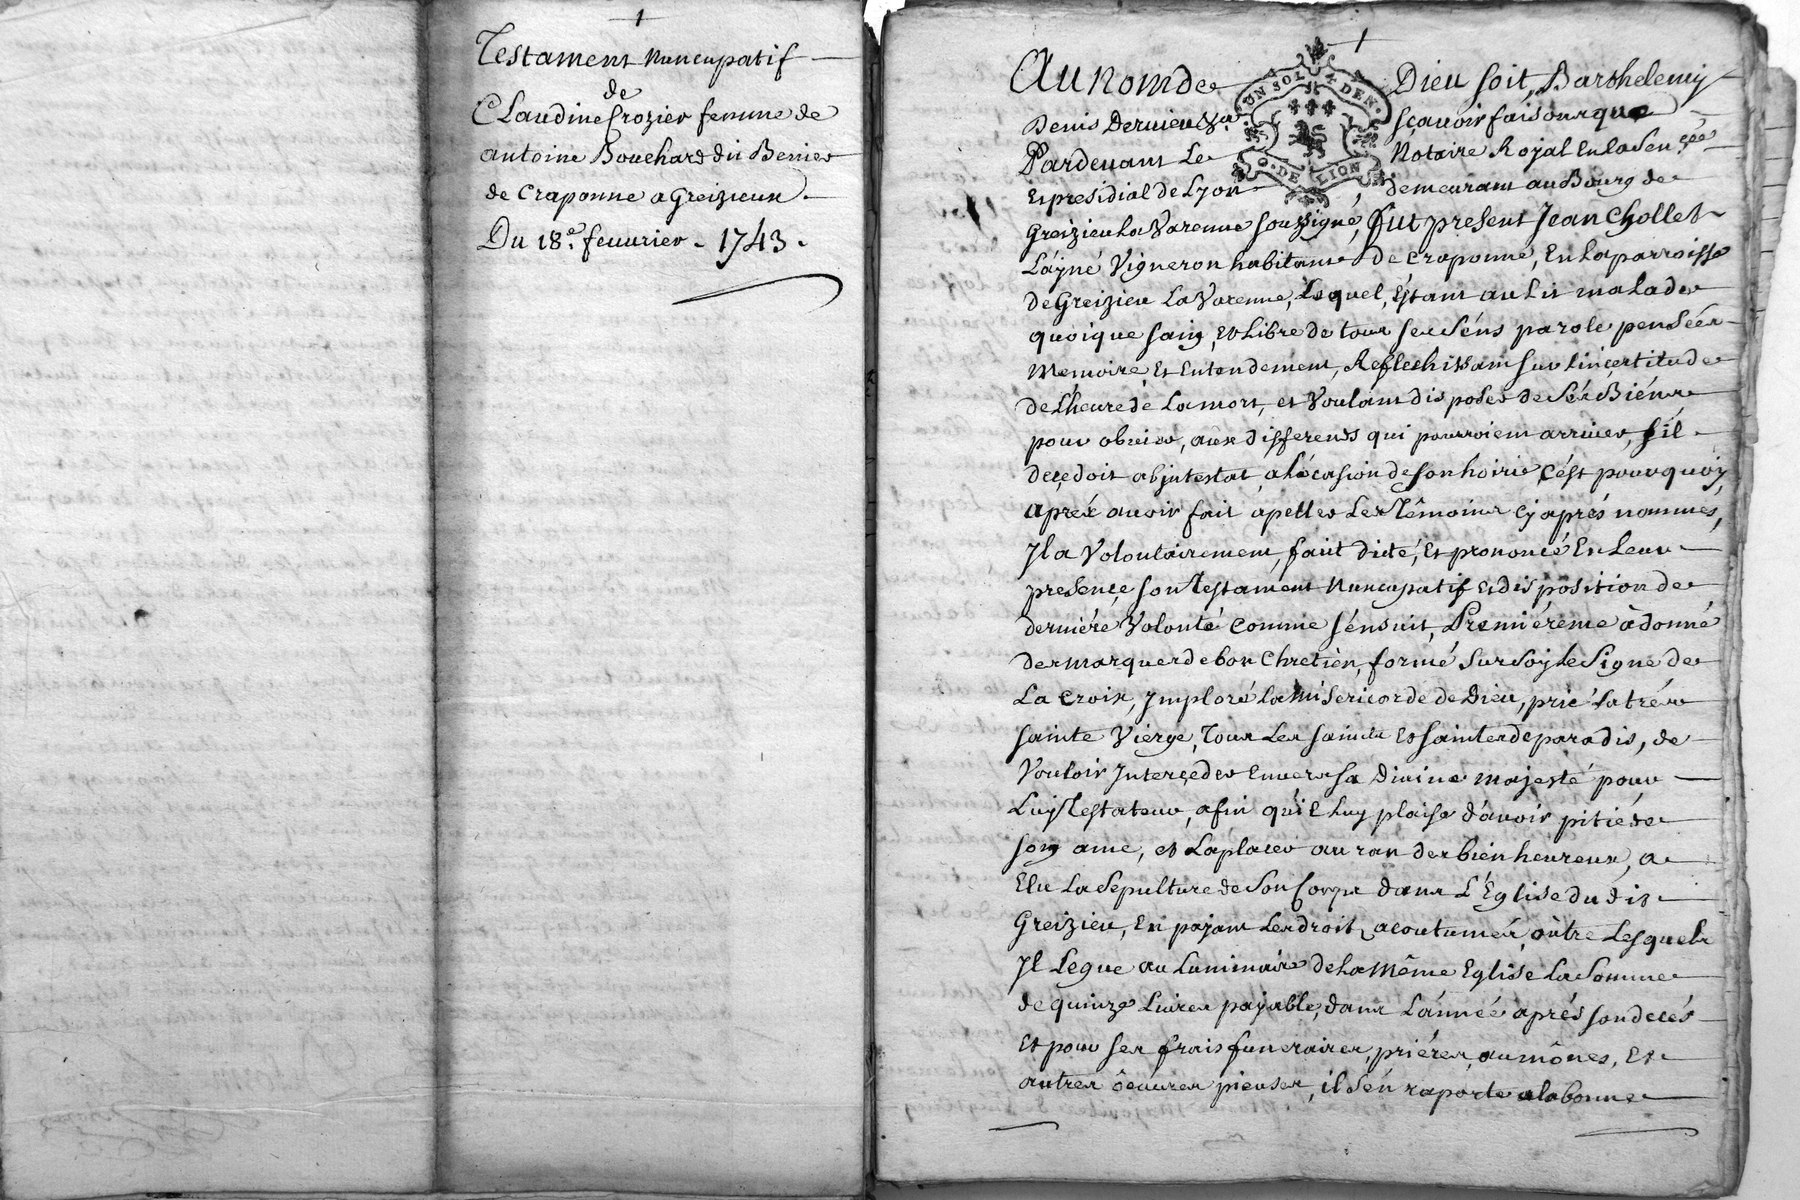 Testament Nuncupatif
de
Claudine Crozier femme de
antoine Bouchard du Berier
de Craponne a Greizieux
Du 18.e feuurier - 1743.
Au nom de Dieu soit, Barthelemy
Denis Dernieu
sçauoir faisons que
UN SOL 4 DEN.
G. DE LION
Pardeuant Le Notaire Royal En la Sen.çée
Et presidial de Lyon demeurant au Bourg de
Greizieu La Varenne soussigné, fut present Jean Chollet
L'aýné Vigneron habitant de Craponne, En la parroisse
de Greizieu La Varenne, Lequel, Estant au Lit malade
quoique sain, et Libre de tous ses séns parole penséés
Memoire Et Entendement, Reflechissant sur l'incertitude
de L'heure de La mort, et Voulant disposer de Sés Biéns
pour obuier, aux differends qui pourroient arriuer, s'il
deçedoit abjntestat, a l'écasion de son hoirie, C'ést pourquoy
aprés auoir fait apeller Les Témoins Cy aprés nommés,
Jl a Volontairement, fait dicté, Et prononcé En Leur
presençe son Testament Nuncupatif Et disposition de
derniére Volonté Comme s'énsuit, Premiéreme à donné
des marques de bon Chretièn, formé sur soy Le Signe de
La Croix, Jmploré La misericorde de Dieu, prié La trés
sainte Vierge, Tous Les saints Et saintes de paradis, de
Vouloir Jnterçeder Enuers sa Diuine majesté pour
Luy Testateur, afin qu'il Luy plaise d'auoir pitié de
son ame, et La placer au ran des bien heureux, a
Elu La Sepulture de Son Corps dans L'Eglise du dit
Greizieu, En paÿant Les droits acoutumés, outre Lesquels
Jl Legue au Luminaire de La Même Eglise La Somme
de quinze Liures paÿable, dans L'année aprés son decés
Et pour ses frais funeraires, priéres, aumônes, Et
autres oeuures pieuses, il s'én raporte a la bonne